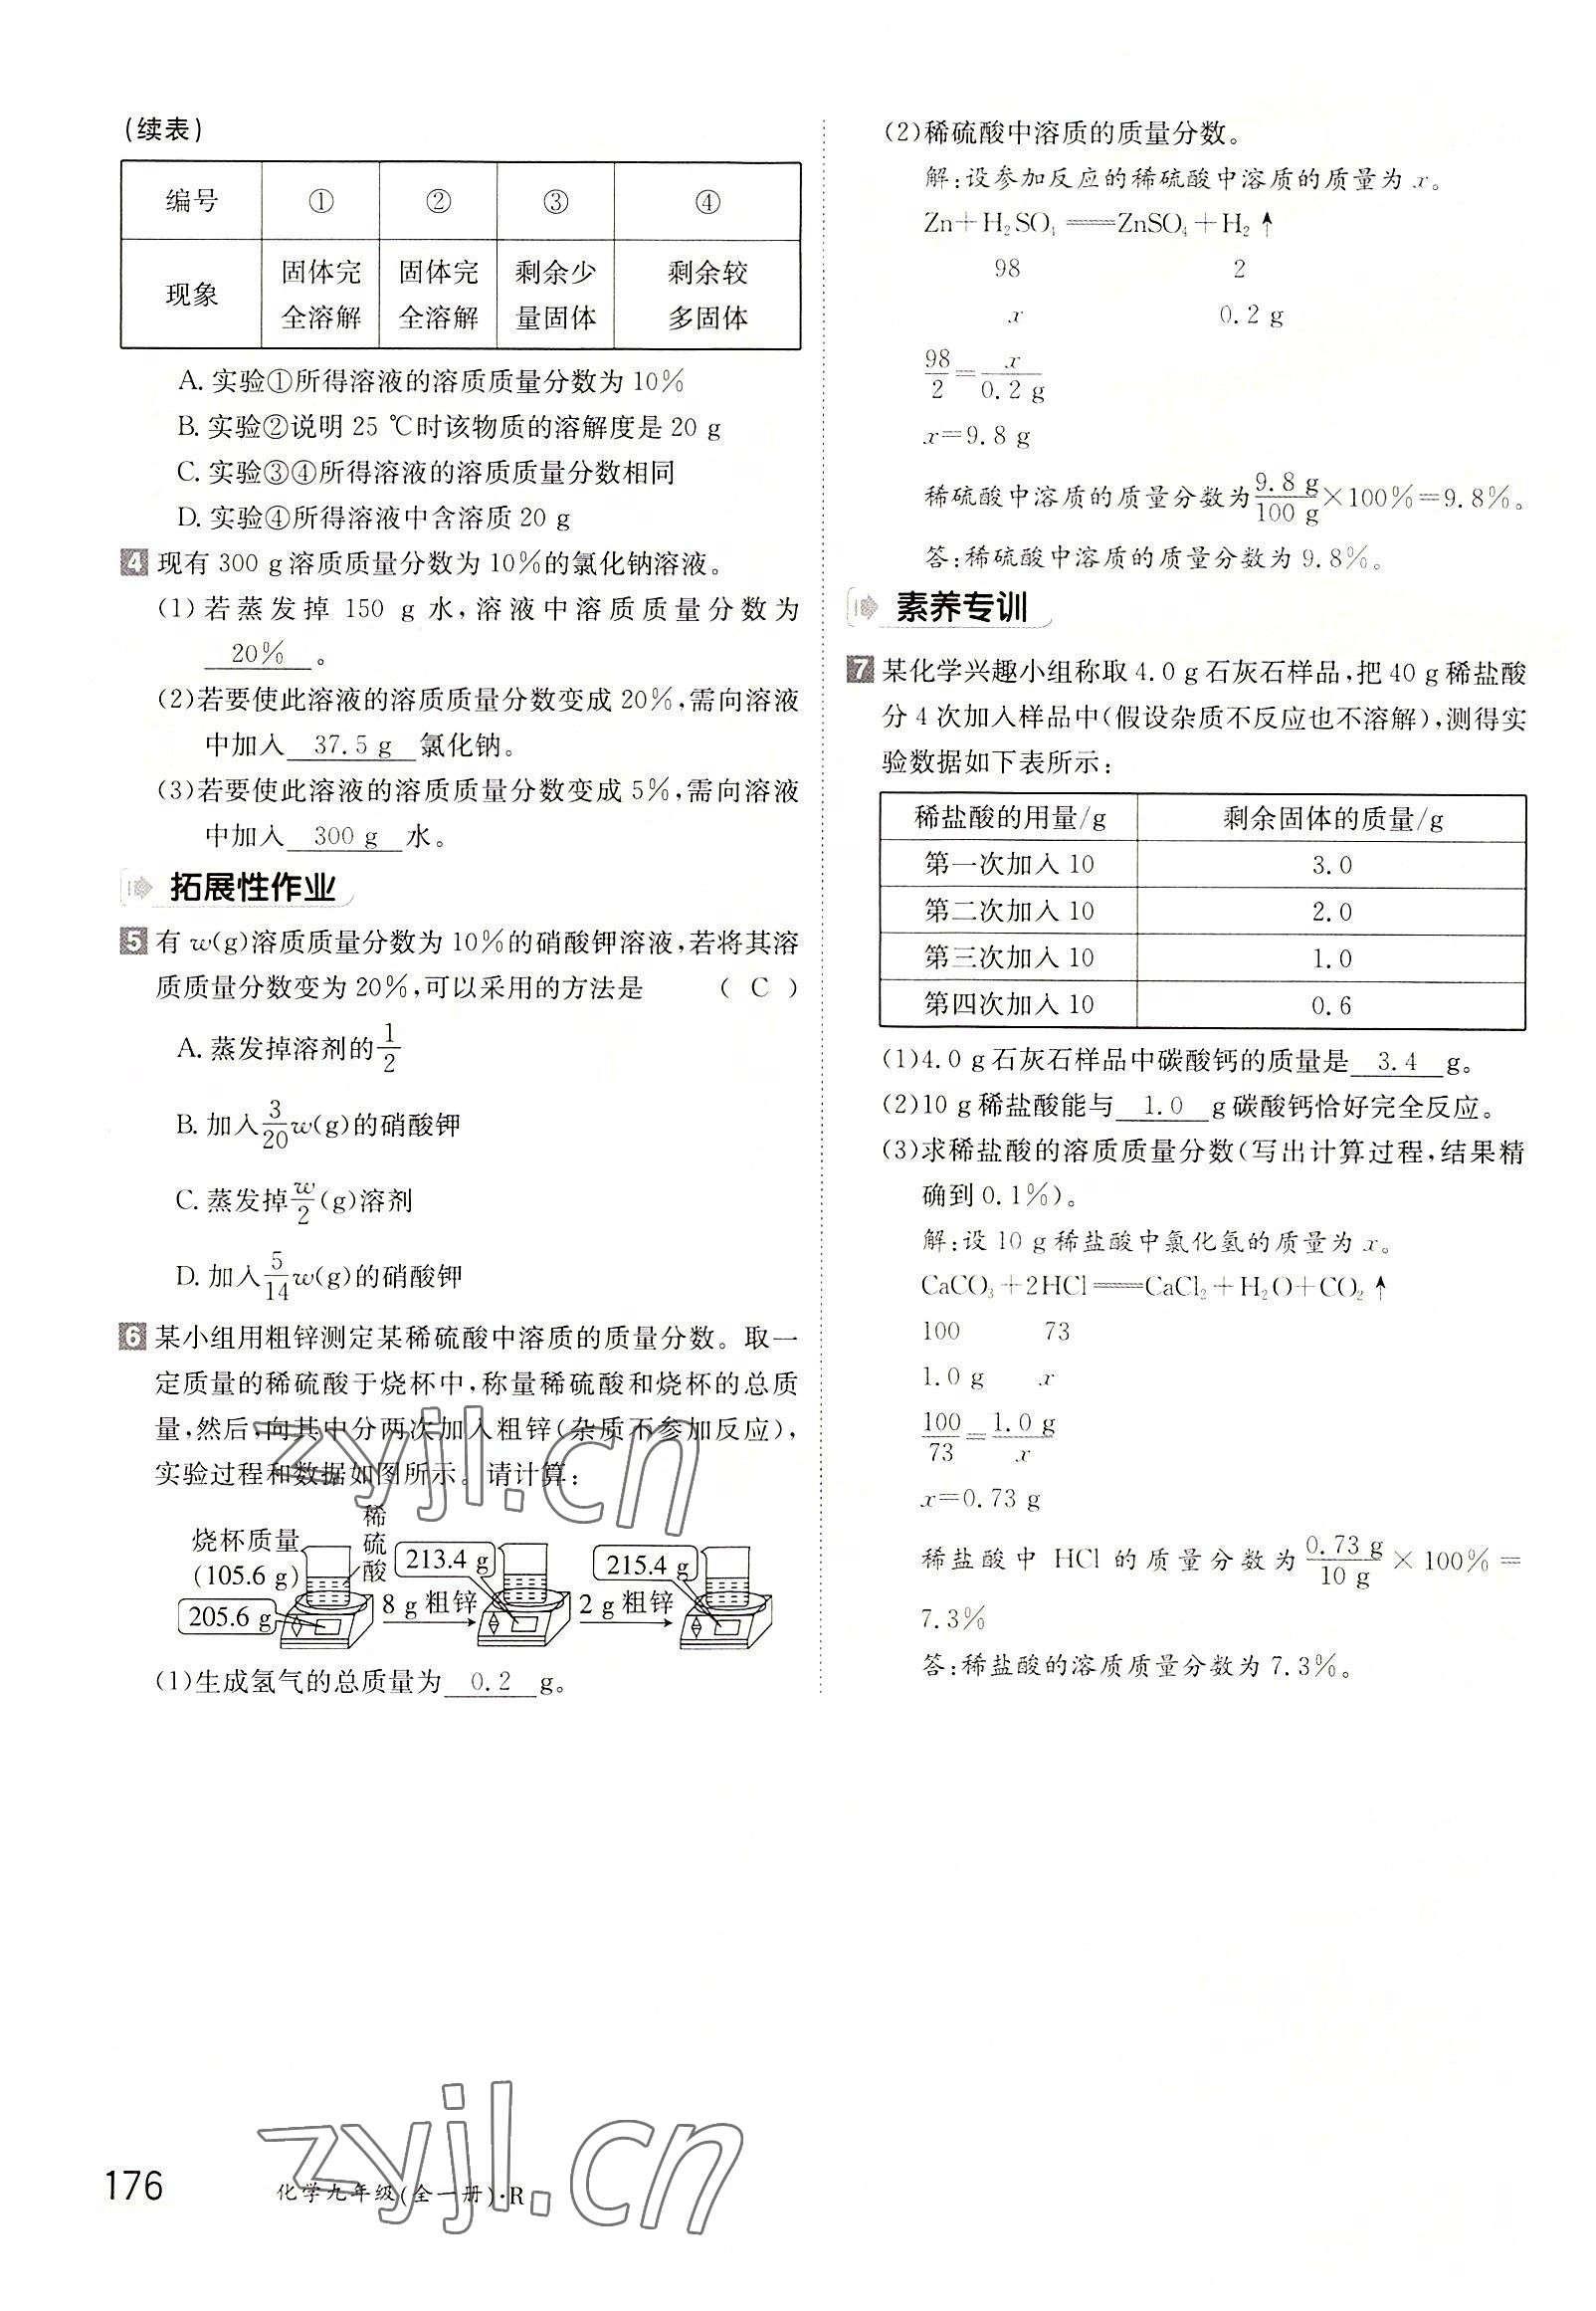 (续表)
编号 ① ② ③ ④
现象 固体完全溶解 固体完全溶解 剩余少量固体 剩余较多固体
A. 实验①所得溶液的溶质质量分数为10%
B. 实验②说明25 ℃时该物质的溶解度是20 g
C. 实验③④所得溶液的溶质质量分数相同
D. 实验④所得溶液中含溶质20 g
4 现有300 g溶质质量分数为10%的氯化钠溶液。
(1)若蒸发掉150 g水,溶液中溶质质量分数为
20%。
(2)若要使此溶液的溶质质量分数变成20%,需向溶液
中加入 37.5 g 氯化钠。
(3)若要使此溶液的溶质质量分数变成5%,需向溶液
中加入 300 g 水。
拓展性作业
5 有w(g)溶质质量分数为10%的硝酸钾溶液,若将其溶
质质量分数变为20%,可以采用的方法是 ( C )
A. 蒸发掉溶剂的1/2
B. 加入3/20w(g)的硝酸钾
C. 蒸发掉w/2(g)溶剂
D. 加入5/14w(g)的硝酸钾
6 某小组用粗锌测定某稀硫酸中溶质的质量分数。取一
定质量的稀硫酸于烧杯中,称量稀硫酸和烧杯的总质
量,然后,向其中分两次加入粗锌(杂质不参加反应),
实验过程和数据如图所示。请计算:
烧杯质量
(105.6 g)
稀硫酸
205.6 g
8 g粗锌
213.4 g
2 g粗锌
215.4 g
(1)生成氢气的总质量为 0.2 g。
(2)稀硫酸中溶质的质量分数。
解:设参加反应的稀硫酸中溶质的质量为x。
Zn+H₂SO₄══ZnSO₄+H₂↑
98 2
x 0.2 g
98/2=x/0.2 g
x=9.8 g
稀硫酸中溶质的质量分数为9.8 g/100 g×100%=9.8%。
答:稀硫酸中溶质的质量分数为9.8%。
素养专训
7 某化学兴趣小组称取4.0 g石灰石样品,把40 g稀盐酸
分4次加入样品中(假设杂质不反应也不溶解),测得实
验数据如下表所示:
稀盐酸的用量/g 剩余固体的质量/g
第一次加入10 3.0
第二次加入10 2.0
第三次加入10 1.0
第四次加入10 0.6
(1)4.0 g石灰石样品中碳酸钙的质量是 3.4 g。
(2)10 g稀盐酸能与 1.0 g碳酸钙恰好完全反应。
(3)求稀盐酸的溶质质量分数(写出计算过程,结果精
确到0.1%)。
解:设10 g稀盐酸中氯化氢的质量为x。
CaCO₃+2HCl══CaCl₂+H₂O+CO₂↑
100 73
1.0 g x
100/73=1.0 g/x
x=0.73 g
稀盐酸中HCl的质量分数为0.73 g/10 g×100%=
7.3%
答:稀盐酸的溶质质量分数为7.3%。
zyjl.cn
zyjl.cn
176 化学九年级(全一册)·R